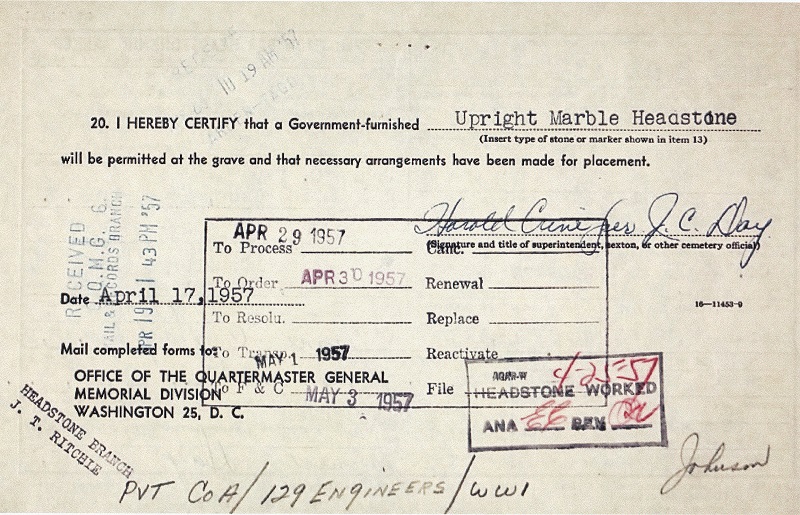 RECEIVED
10 19 AM '57
20. I HEREBY CERTIFY that a Government-furnished Upright Marble Headstone
(Insert type of stone or marker shown in item 13)
will be permitted at the grave and that necessary arrangements have been made for placement.
RECEIVED
O.Q.M.G. 6
MAIL & RECORDS BRANCH
APR 19 1 43 PM '57
Harold Cune per J. C. Day
(Signature and title of superintendent, sexton, or other cemetery official)
APR 29 1957
To Process Canc.
To Order APR 30 1957 Renewal
To Resolu. Replace
To Transp. MAY 1 1957 Reactivate
To F & C MAY 3 1957 File
Date April 17, 1957
16—11453-9
Mail completed forms to:
OFFICE OF THE QUARTERMASTER GENERAL
MEMORIAL DIVISION
WASHINGTON 25, D. C.
4-25-57
HEADSTONE WORKED
ANA EE REV
HEADSTONE BRANCH
J. T. RITCHIE
Johnson
PVT Co A/129 ENGINEERS/WW1